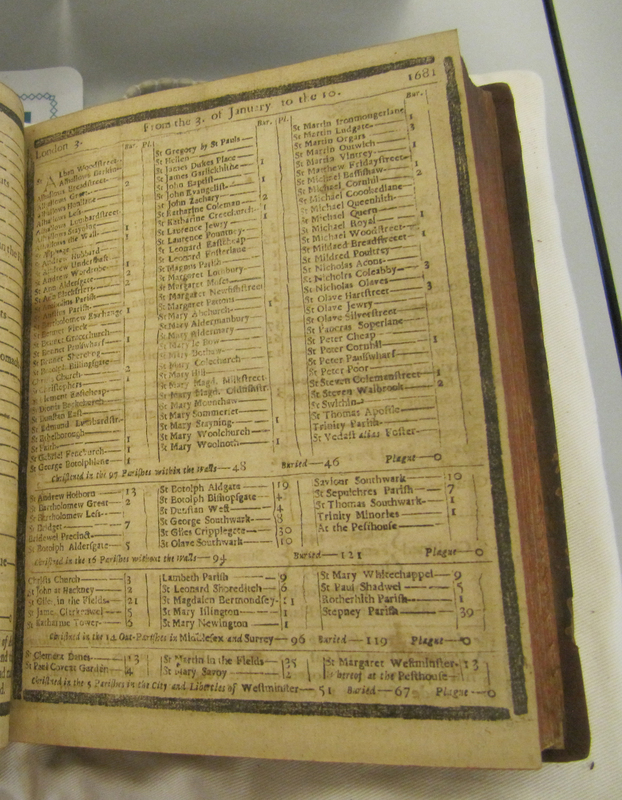 London 3. From the 3. of January to the 10. 1681
Bur. Pl.
St Alban Woodstreet
Alhallows Barkin
Alhallows Breadstreet 2
Alhallows Great
Alhallows Honilane
Alhallows Less
Alhallows Lombardstreet
Alhallows Staining 1
Alhallows the Wall 1
St Alphage
St Andrew Hubbard
St Andrew Undershaft 1
St Andrew Wardrobe 2
St Ann Aldersgate 2
St Ann Blackfriers
Parish
Parish
St Bartholomew Exchange 1
St Bennet Finck
St Bennet Gracechurch
St Bennet Paulswharf
St Bennet Sherehog
St Botolph Billingsgate
Christ Church
St Christophers
St Clement Eastcheap
St Dionis Backchurch
St Dunstan East
St Edmund Lumbardstr.
St Ethelborough
St Faith 1
St Gabriel Fenchurch 1
St George Botolphlane 1
Bur. Pl.
St Gregory by St Pauls
St Hellen
St James Dukes Place 1
St James Garlickhithe
St John Baptist 1
St John Evangelist
St John Zachary
St Katharine Coleman 2
St Katharine Creechurch 1
St Laurence Jewry
St Laurence Pountney
St Leonard Eastcheap
St Leonard Fosterlane
St Magnus Parish
St Margaret Lothbury
St Margaret Moses
St Margaret Newfishstreet
St Margaret Pattons
St Mary Abchurch 1
St Mary Aldermanbury
St Mary Aldermary
St Mary le Bow
St Mary Bothaw
St Mary Colechurch
St Mary Hill
St Mary Magd. Milkstreet
St Mary Magd. Oldfishstr.
St Mary Mounthaw
St Mary Summerset
St Mary Stayning 1
St Mary Woolchurch
St Mary Woolnoth 1
Bur.
St Martin Ironmongerlane
St Martin Ludgate 1
St Martin Orgars
St Martin Outwich
St Martin Vintrey 1
St Matthew Fridaystreet
St Michael Bassishaw
St Michael Cornhil
St Michael Crookedlane
St Michael Queenhith
St Michael Quern
St Michael Royal
St Michael Woodstreet
St Mildred Breadstreet 1
St Mildred Poultrey
St Nicholas Acons
St Nicholas Coleabby 3
St Nicholas Olaves
St Olave Hartstreet 3
St Olave Jewry
St Olave Silverstreet
St Pancras Soperlane
St Peter Cheap
St Peter Cornhil 1
St Peter Paulswharf
St Peter Poor
St Steven Colemanstreet 1
St Steven Walbrook 2
St Swithin
St Thomas Apostle
Trinity Parish
St Vedast alias Foster
Christned in the 97 Parishes within the Walls—48 Buried—46 Plague—0
St Andrew Holborn 13
St Bartholomew Great 2
St Bartholomew Less
St Bridget 7
Bridewel Precinct
St Botolph Aldersgate 5
St Botolph Aldgate 19
St Botolph Bishopsgate 4
St Dunstan West 4
St George Southwark 3
St Giles Cripplegate 30
St Olave Southwark 10
Saviour Southwark 10
St Sepulchres Parish 7
St Thomas Southwark 1
Trinity Minories 1
At the Pesthouse
Christned in the 16 Parishes without the Walls—94 Buried—121 Plague—0
Christs Church 3
St John at Hackney 2
St Giles in the Fields 21
St James Clerkenwel 5
St Katharine Tower 6
Lambeth Parish 9
St Leonard Shoreditch 6
St Magdalen Bermondsey 11
St Mary Islington 1
St Mary Newington 1
St Mary Whitechappel 9
St Paul Shadwel 5
Rotherhith Parish 1
Stepney Parish 39
Christned in the 14 Out-Parishes in Middlesex and Surrey—96 Buried—119 Plague—0
St Clement Danes 13
St Paul Covent Garden 4
St Martin in the Fields 35
St Mary Savoy 2
St Margaret Westminster 13
whereof at the Pesthouse
Christned in the 5 Parishes in the City and Liberties of Westminster—51 Buried—67 Plague—0